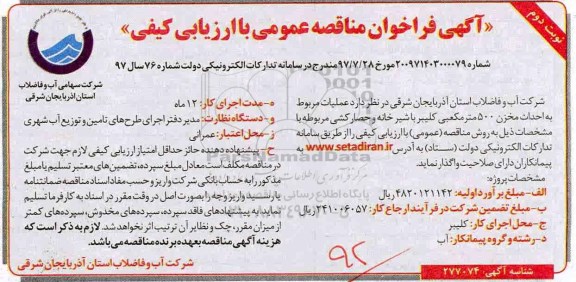 نوبت دوم
«آگهی فراخوان مناقصه عمومی با ارزیابی کیفی»
شماره ۲۰۰۹۷۱۴۰۳۰۰۰۰۷۹ مورخ ۹۷/۷/۲۸ مندرج در سامانه تدارکات الکترونیکی دولت شماره ۷۶ سال ۹۷
شرکت سهامی آب و فاضلاب
استان آذربایجان شرقی
شرکت آب و فاضلاب استان آذربایجان شرقی در نظر دارد عملیات مربوط
به احداث مخزن ۵۰۰ مترمکعبی کلیبر با شیرخانه و حصارکشی مربوطه با
مشخصات ذیل به روش مناقصه (عمومی) با ارزیابی کیفی را از طریق سامانه
تدارکات الکترونیکی دولت (ستاد) به آدرس www.setadiran.ir به
پیمانکاران دارای صلاحیت واگذار نماید.
مشخصات پروژه:
الف- مبلغ برآورد اولیه: ۴۸۲۰۱۲۱۱۴۲ ریال
ب- مبلغ تضمین شرکت در فرآیند ارجاع کار: ۲۴۱۰۰۶۰۵۷ ریال
ج- محل اجرای کار: کلیبر
د- رشته و گروه پیمانکار: آب
ه- مدت اجرای کار: ۱۲ ماه
و- دستگاه نظارت: مدیر دفتر اجرای طرح‌های تامین و توزیع آب شهری
ز- محل اعتبار: عمرانی
ح- پیشنهاد دهنده حائز حداقل امتیاز ارزیابی کیفی لازم جهت شرکت
در مناقصه مکلف است معادل مبلغ سپرده، تضمین‌های معتبر تسلیم یا مبلغ
مذکور را به حساب بانکی شرکت واریز و حسب مفاد اسناد مناقصه ضمانتنامه
یا رسید واریز وجه را بصورت اصل در وقت مقرر در اسناد به کارفرما تسلیم
نماید به پیشنهادهای فاقد سپرده، سپرده‌های مخدوش، سپرده‌های کمتر
از میزان مقرر، چک و نظایر آن ترتیب اثر نخواهد شد. لازم به ذکر است که
هزینه آگهی مناقصه بعهده برنده مناقصه می‌باشد.
شرکت آب و فاضلاب استان آذربایجان شرقی
شناسه آگهی ۲۷۷۰۷۴
۹۲
ParsNamadData